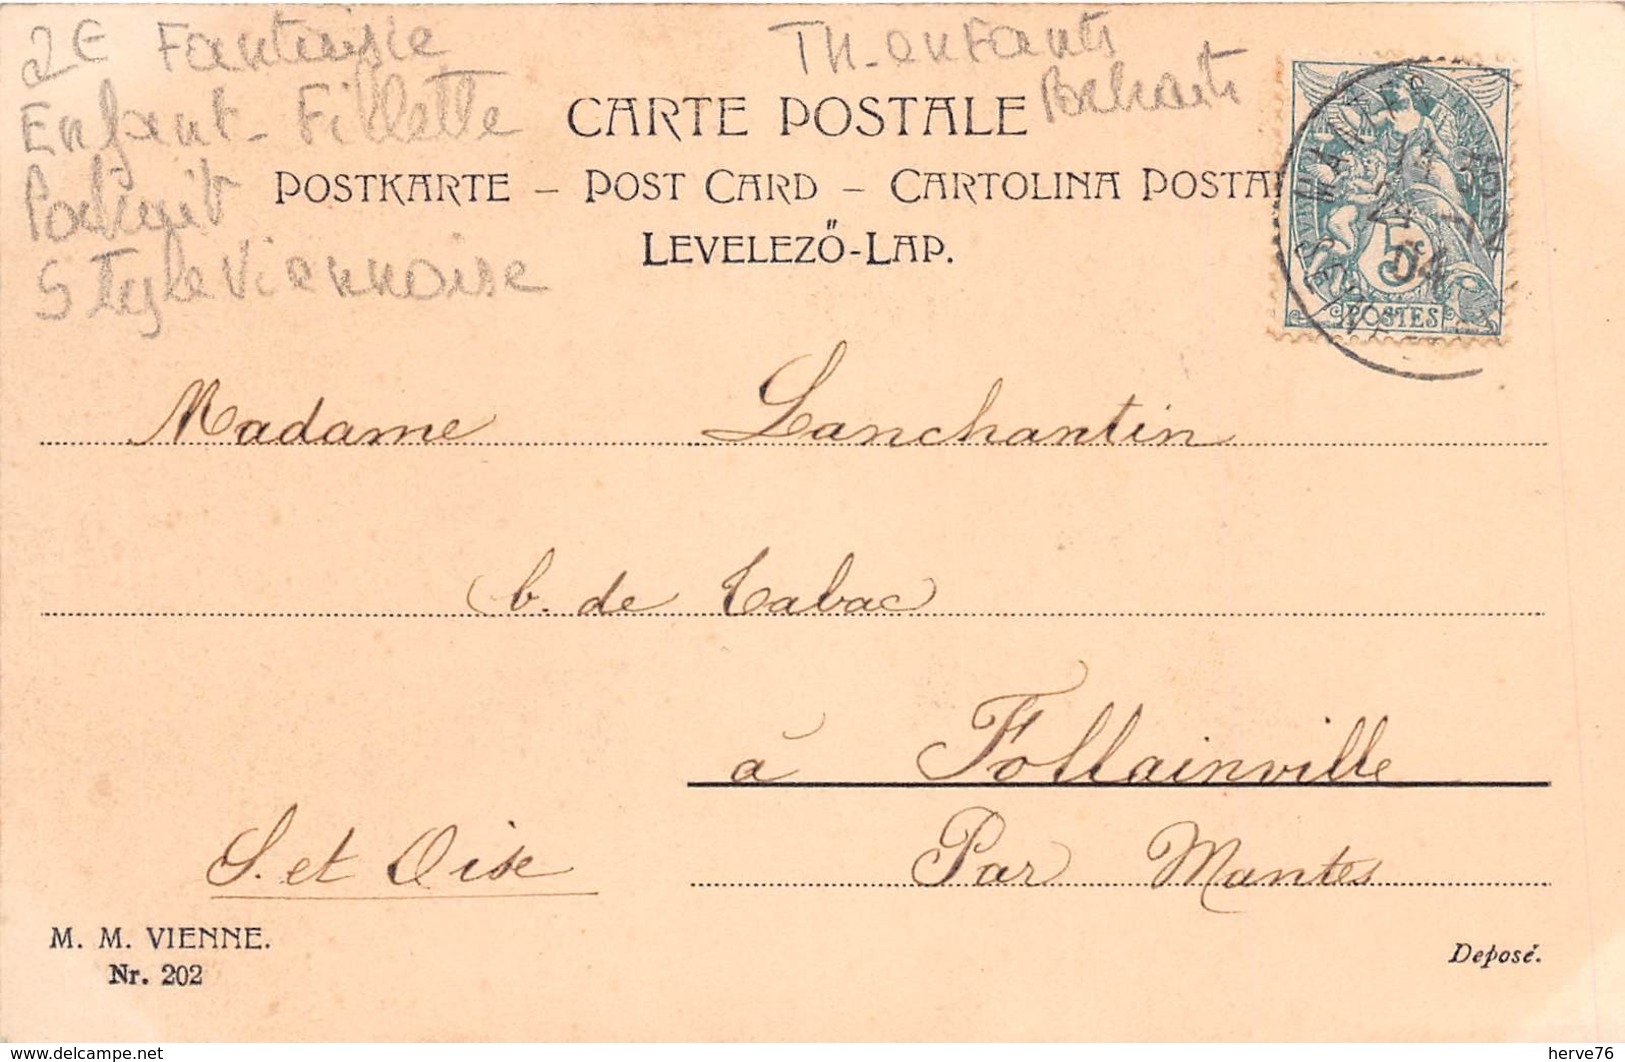 2E Fantaisie
Enfant - Fillette
Portrait
Style Viennoise
TH - enfants
Portraits
CARTE POSTALE
POSTKARTE – POST CARD – CARTOLINA POSTA
LEVELEZŐ-LAP.
MANTES
04
5
POSTES
Madame Lanchantin
(b. de Tabac)
à Follainville
S. et Oise
Par Mantes
M. M. VIENNE.
Nr. 202
Deposé.
www.delcampe.net
herve76